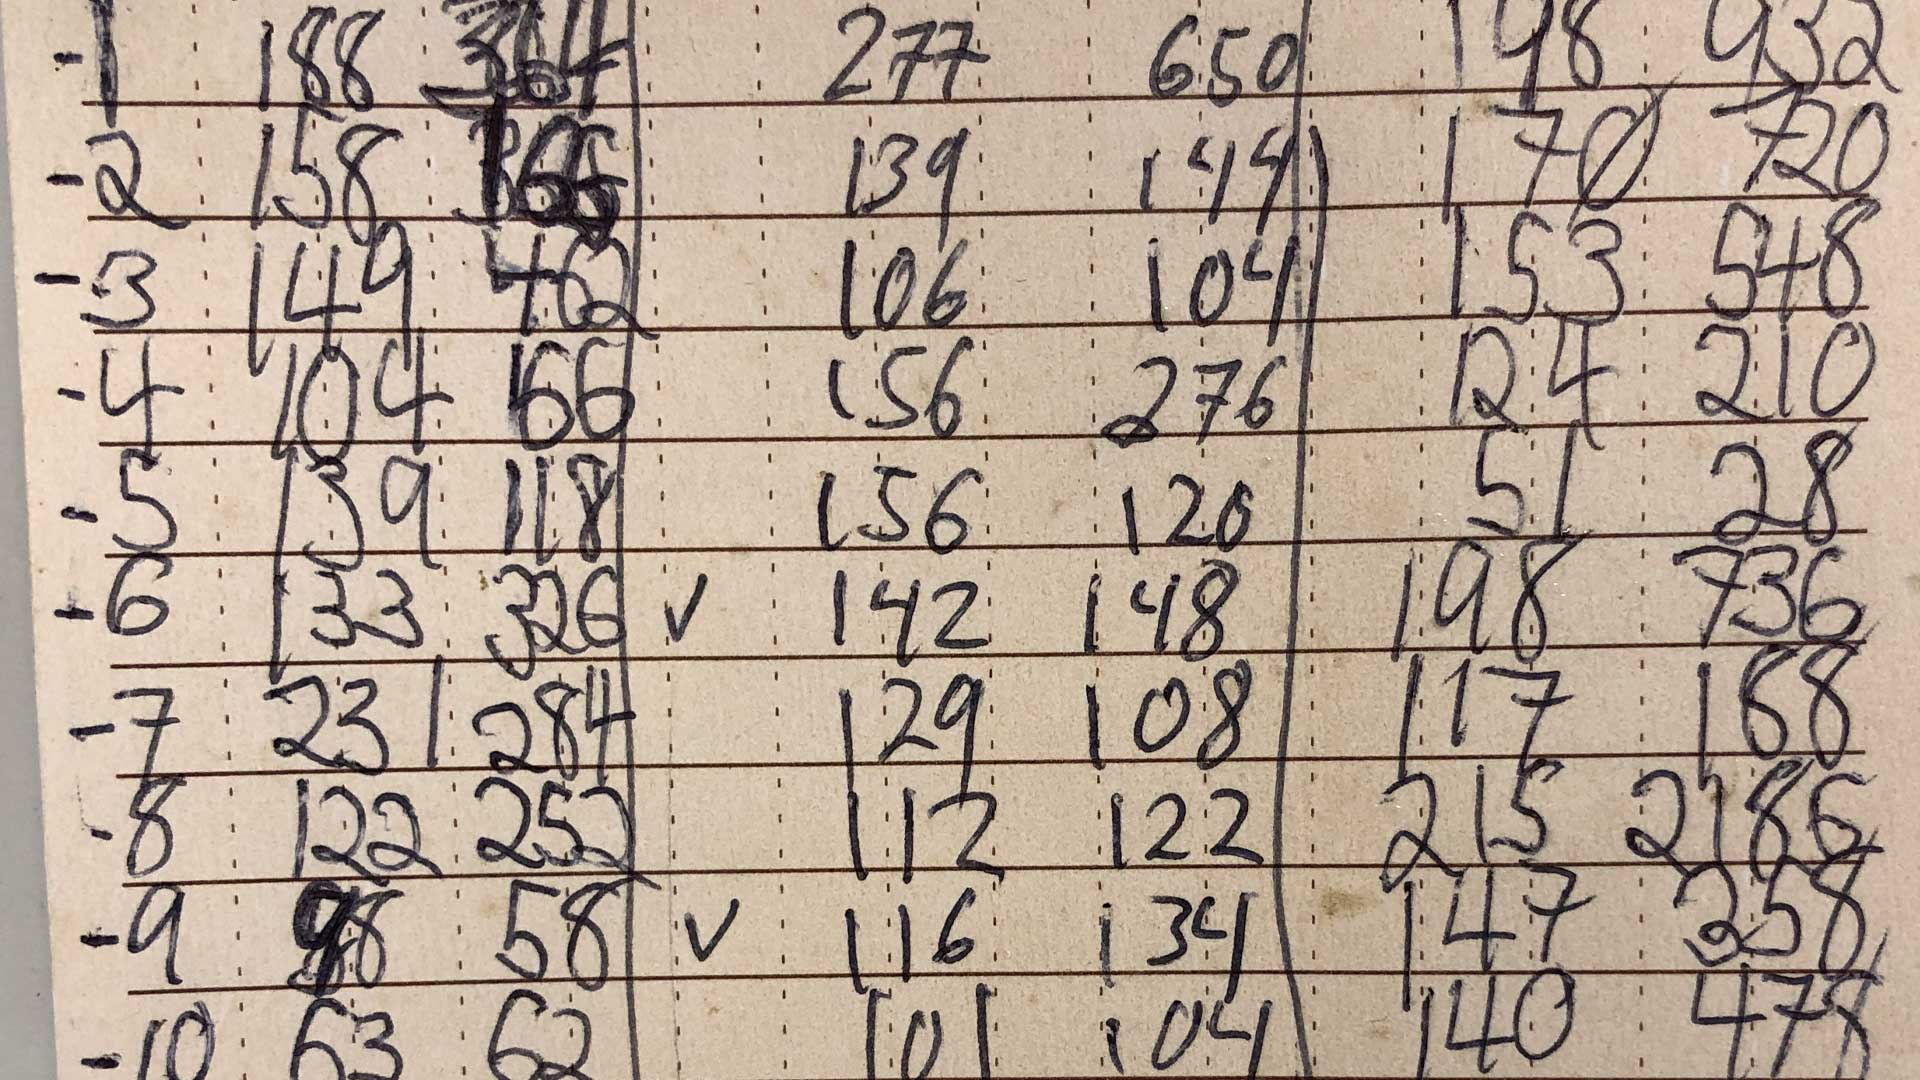 -1 188 364 277 650 198 932
-2 158 139 144 170 720
-3 149 462 106 104 153 548
-4 104 166 156 276 124 210
-5 139 118 156 120 51 28
-6 133 326 ✓ 142 148 198 736
-7 231 284 129 108 117 168
-8 122 252 112 122 215 2186
-9 98 58 ✓ 116 134 147 258
-10 63 62 101 104 140 478